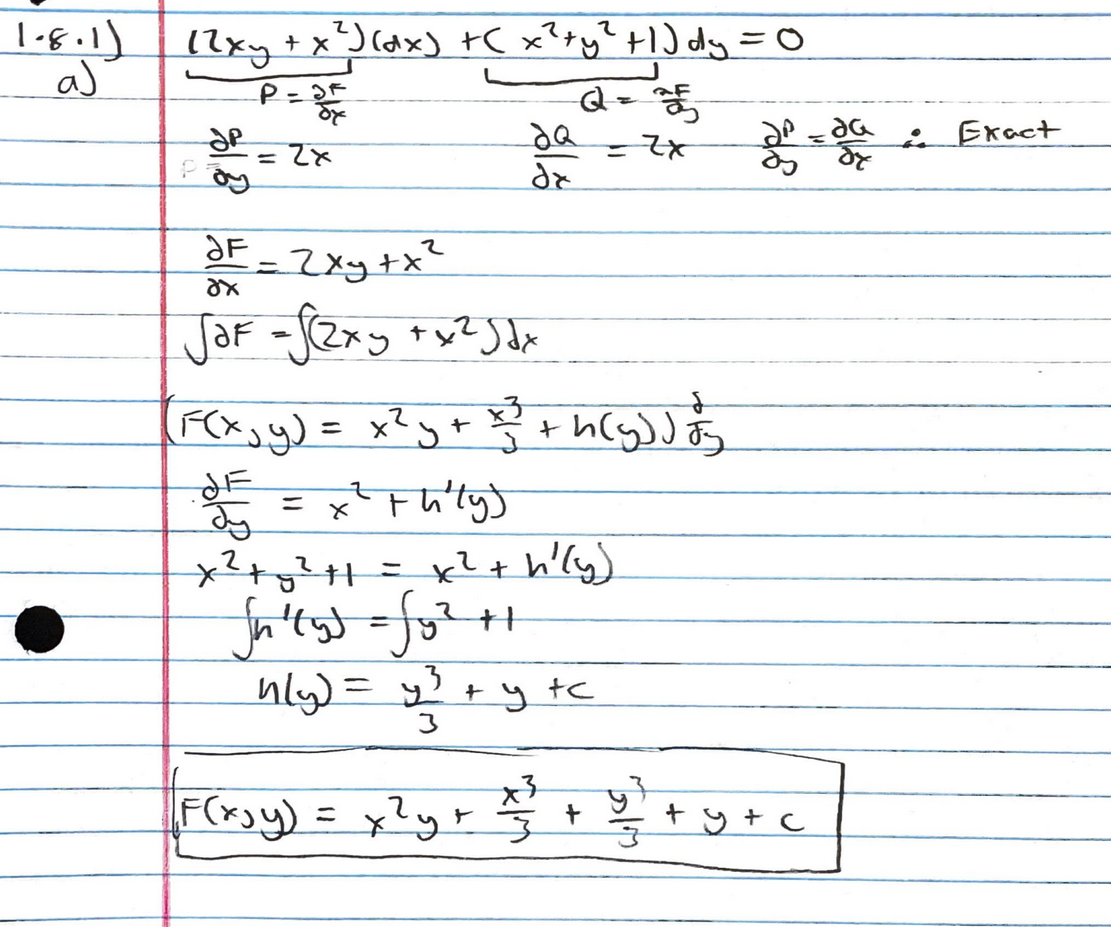 1.8.1) (2xy + x²)(dx) + ( x²+y²+1) dy = 0
a) P = ∂F/∂x Q = ∂F/∂y
∂P/∂y = 2x ∂Q/∂x = 2x ∂P/∂y = ∂Q/∂x ∴ Exact
∂F/∂x = 2xy + x²
∫∂F = ∫(2xy + x²)dx
(F(x,y) = x²y + x³/3 + h(y)) ∂/∂y
∂F/∂y = x² + h'(y)
x² + y² + 1 = x² + h'(y)
∫h'(y) = ∫y² + 1
h(y) = y³/3 + y + c
F(x,y) = x²y + x³/3 + y³/3 + y + c